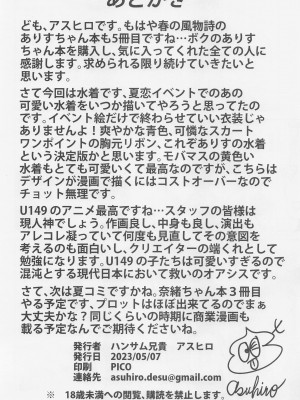 あとがき
ども、アスヒロです。もはや春の風物詩の
ありすちゃん本も5冊目ですね…ボクのありす
ちゃん本を購入し、気に入ってくれた全ての人に
感謝します。求められる限り続けていきたいと
思います。
さて今回は水着です、夏恋イベントでのあの
可愛い水着をいつか描いてやろうと思ってたの
です。イベント絵だけで終わらせていい衣装じゃ
ありませんよ!爽やかな青色、可憐なスカート
ワンポイントの胸元リボン、これぞありすの水着
という決定版かと思います。モバマスの黄色い
水着もとても可愛くて最高なのですが、こちらは
デザインが漫画で描くにはコストオーバーなので
チョット無理です。
U149のアニメ最高ですね…スタッフの皆様は
現人神でしょう。作画良し、中身も良し、演出も
アレコレ凝っていて何度も見直してその意図を
考えるのも面白いし、クリエイターの端くれとして
勉強になります。U149の子たちは可愛いすぎるので
混沌とする現代日本において救いのオアシスです。
さて、次は夏コミですかね。奈緒ちゃん本3冊目
やる予定です、プロットはほぼ出来てるのでまぁ
大丈夫かな?同じくらいの時期に商業漫画も
載る予定なんでご期待ください!
発行者 ハンサム兄貴 アスヒロ
発行日 2023/05/07
印刷 PICO
連絡先 asuhiro.desu@gmail.com
asuhiro
※ 18歳未満への閲覧、購読を禁止します。